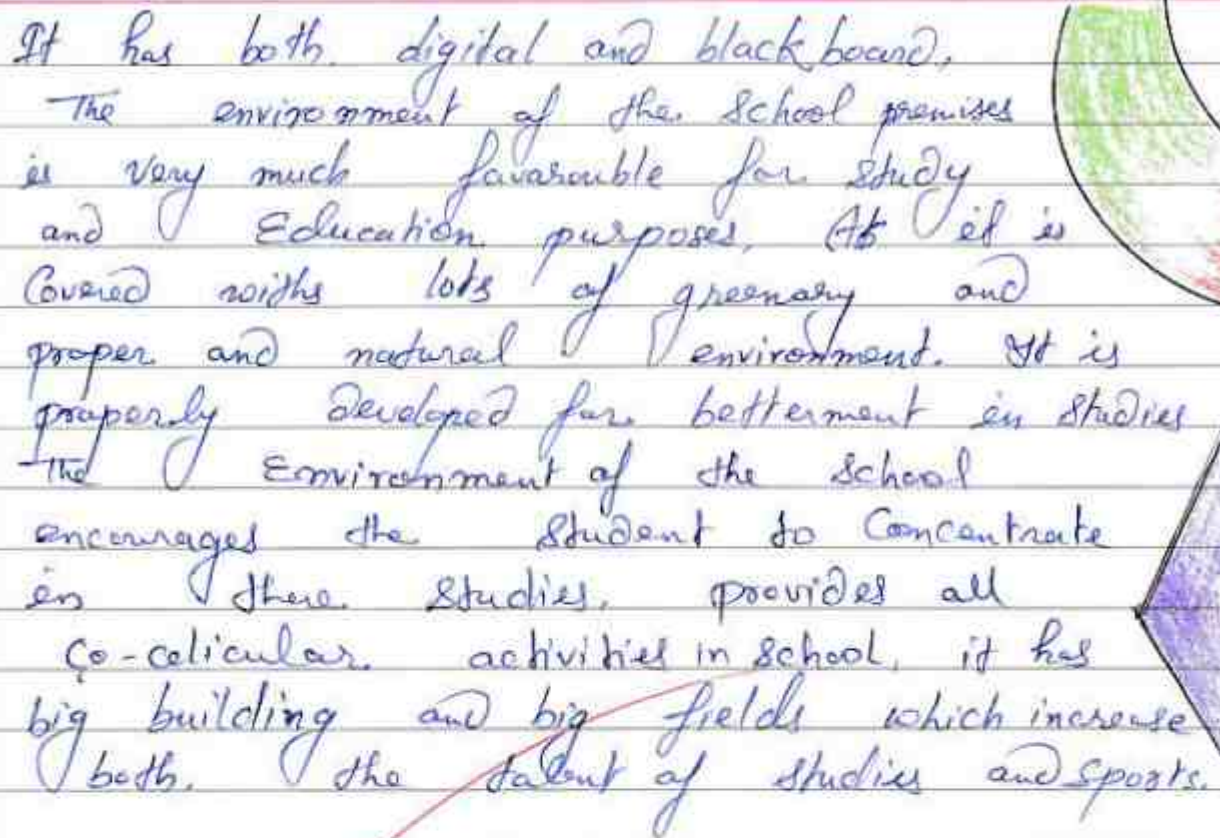 It has both digital and black board,
The environment of the School premises
is very much favarouble for study
and Education purposes, As it is
Covered withs lots of greenary and
proper and natural environment. It is
properly developed for betterment in studies
The Environment of the school
encourages the student to Concentrate
in there studies, provides all
Co-colicular activities in school, it has
big building and big fields which increase
both the talent of studies and sports.